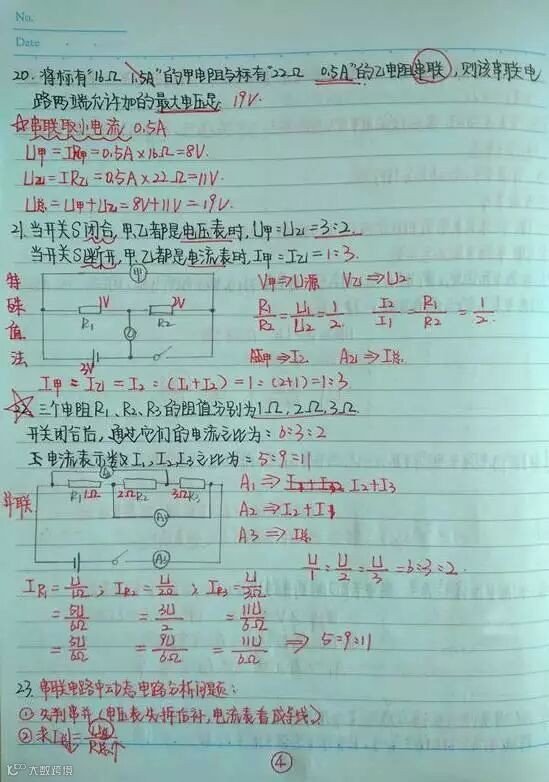 No.
Date
20. 将标有"16Ω 1.5A"的甲电阻与标有"22Ω 0.5A"的乙电阻串联，则该串联电
路两端允许加的最大电压是 19V.
☆串联取小电流 0.5A
U甲=IR甲=0.5A×16Ω=8V.
U乙=IR乙=0.5A×22Ω=11V.
U总=U甲+U乙=8V+11V=19V.
21. 当开关S闭合，甲、乙都是电压表时，U甲:U乙=3:2.
当开关S断开，甲、乙都是电流表时，I甲:I乙=1:3.
特殊值法
甲
1V
2V
R1
R2
乙
3V
V甲⇒U源 V乙⇒U2
R1/R2=U1/U2=1/2. I2/I1=R1/R2=1/2.
A甲⇒I2 A乙⇒I总
I甲:I乙=I2:(I1+I2)=1:(2+1)=1:3
☆22. 三个电阻R1、R2、R3的阻值分别为1Ω,2Ω,3Ω
开关闭合后，通过它们的电流之比为: 6:3:2
电流表示数I1,I2,I3之比为: 5:9:11
并联
A1
R1 1Ω
2Ω R2
3Ω R3
A2
A3
A1⇒I2+I3
A2⇒I2+I1
A3⇒I总
U/1:U/2:U/3=6:3:2.
IR1=U/1Ω; IR2=U/2Ω; IR3=U/3Ω
=5U/6Ω =3U/2 =11U/6Ω
=5U/6Ω =9U/6Ω =11U/6Ω ⇒ 5:9:11
23. 串联电路中动态电路分析问题:
① 先判串并(电压表先拆后补,电流表看成导线)
② 求I
④
大数跨境